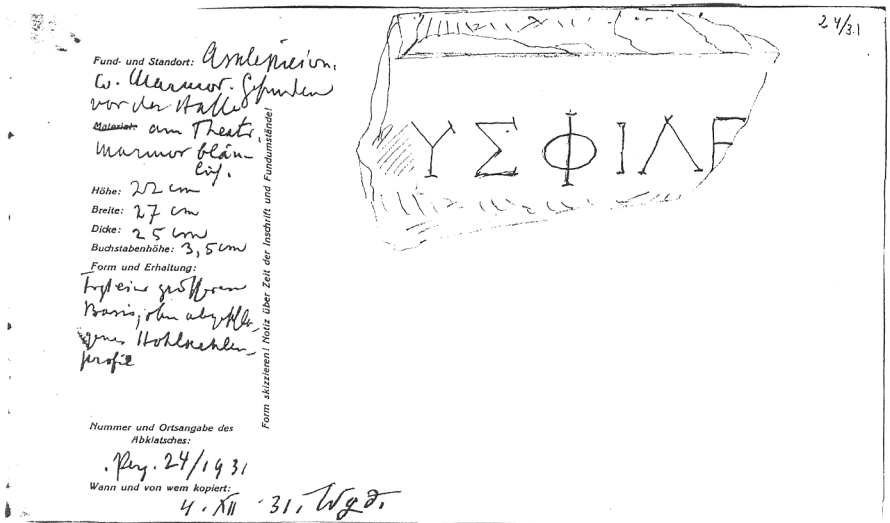 24/31
Fund- und Standort: Asklepieion.
W. Marmor. Gefunden
vor der Halle
Material: am Theater
Marmor bläu-
lich.
Höhe: 22 cm
Breite: 27 cm
Dicke: 25 cm
Buchstabenhöhe: 3,5 cm
Form und Erhaltung:
größeren
Basis, oben abgeschla-
genes Hohlkehlen-
profil
Form skizzieren! Notiz über Zeit der Inschrift und Fundumstände!
Nummer und Ortsangabe des
Abklatsches:
Perg. 24/1931
Wann und von wem kopiert:
4. XII. 31.
ΥΣΦΙΛΕ